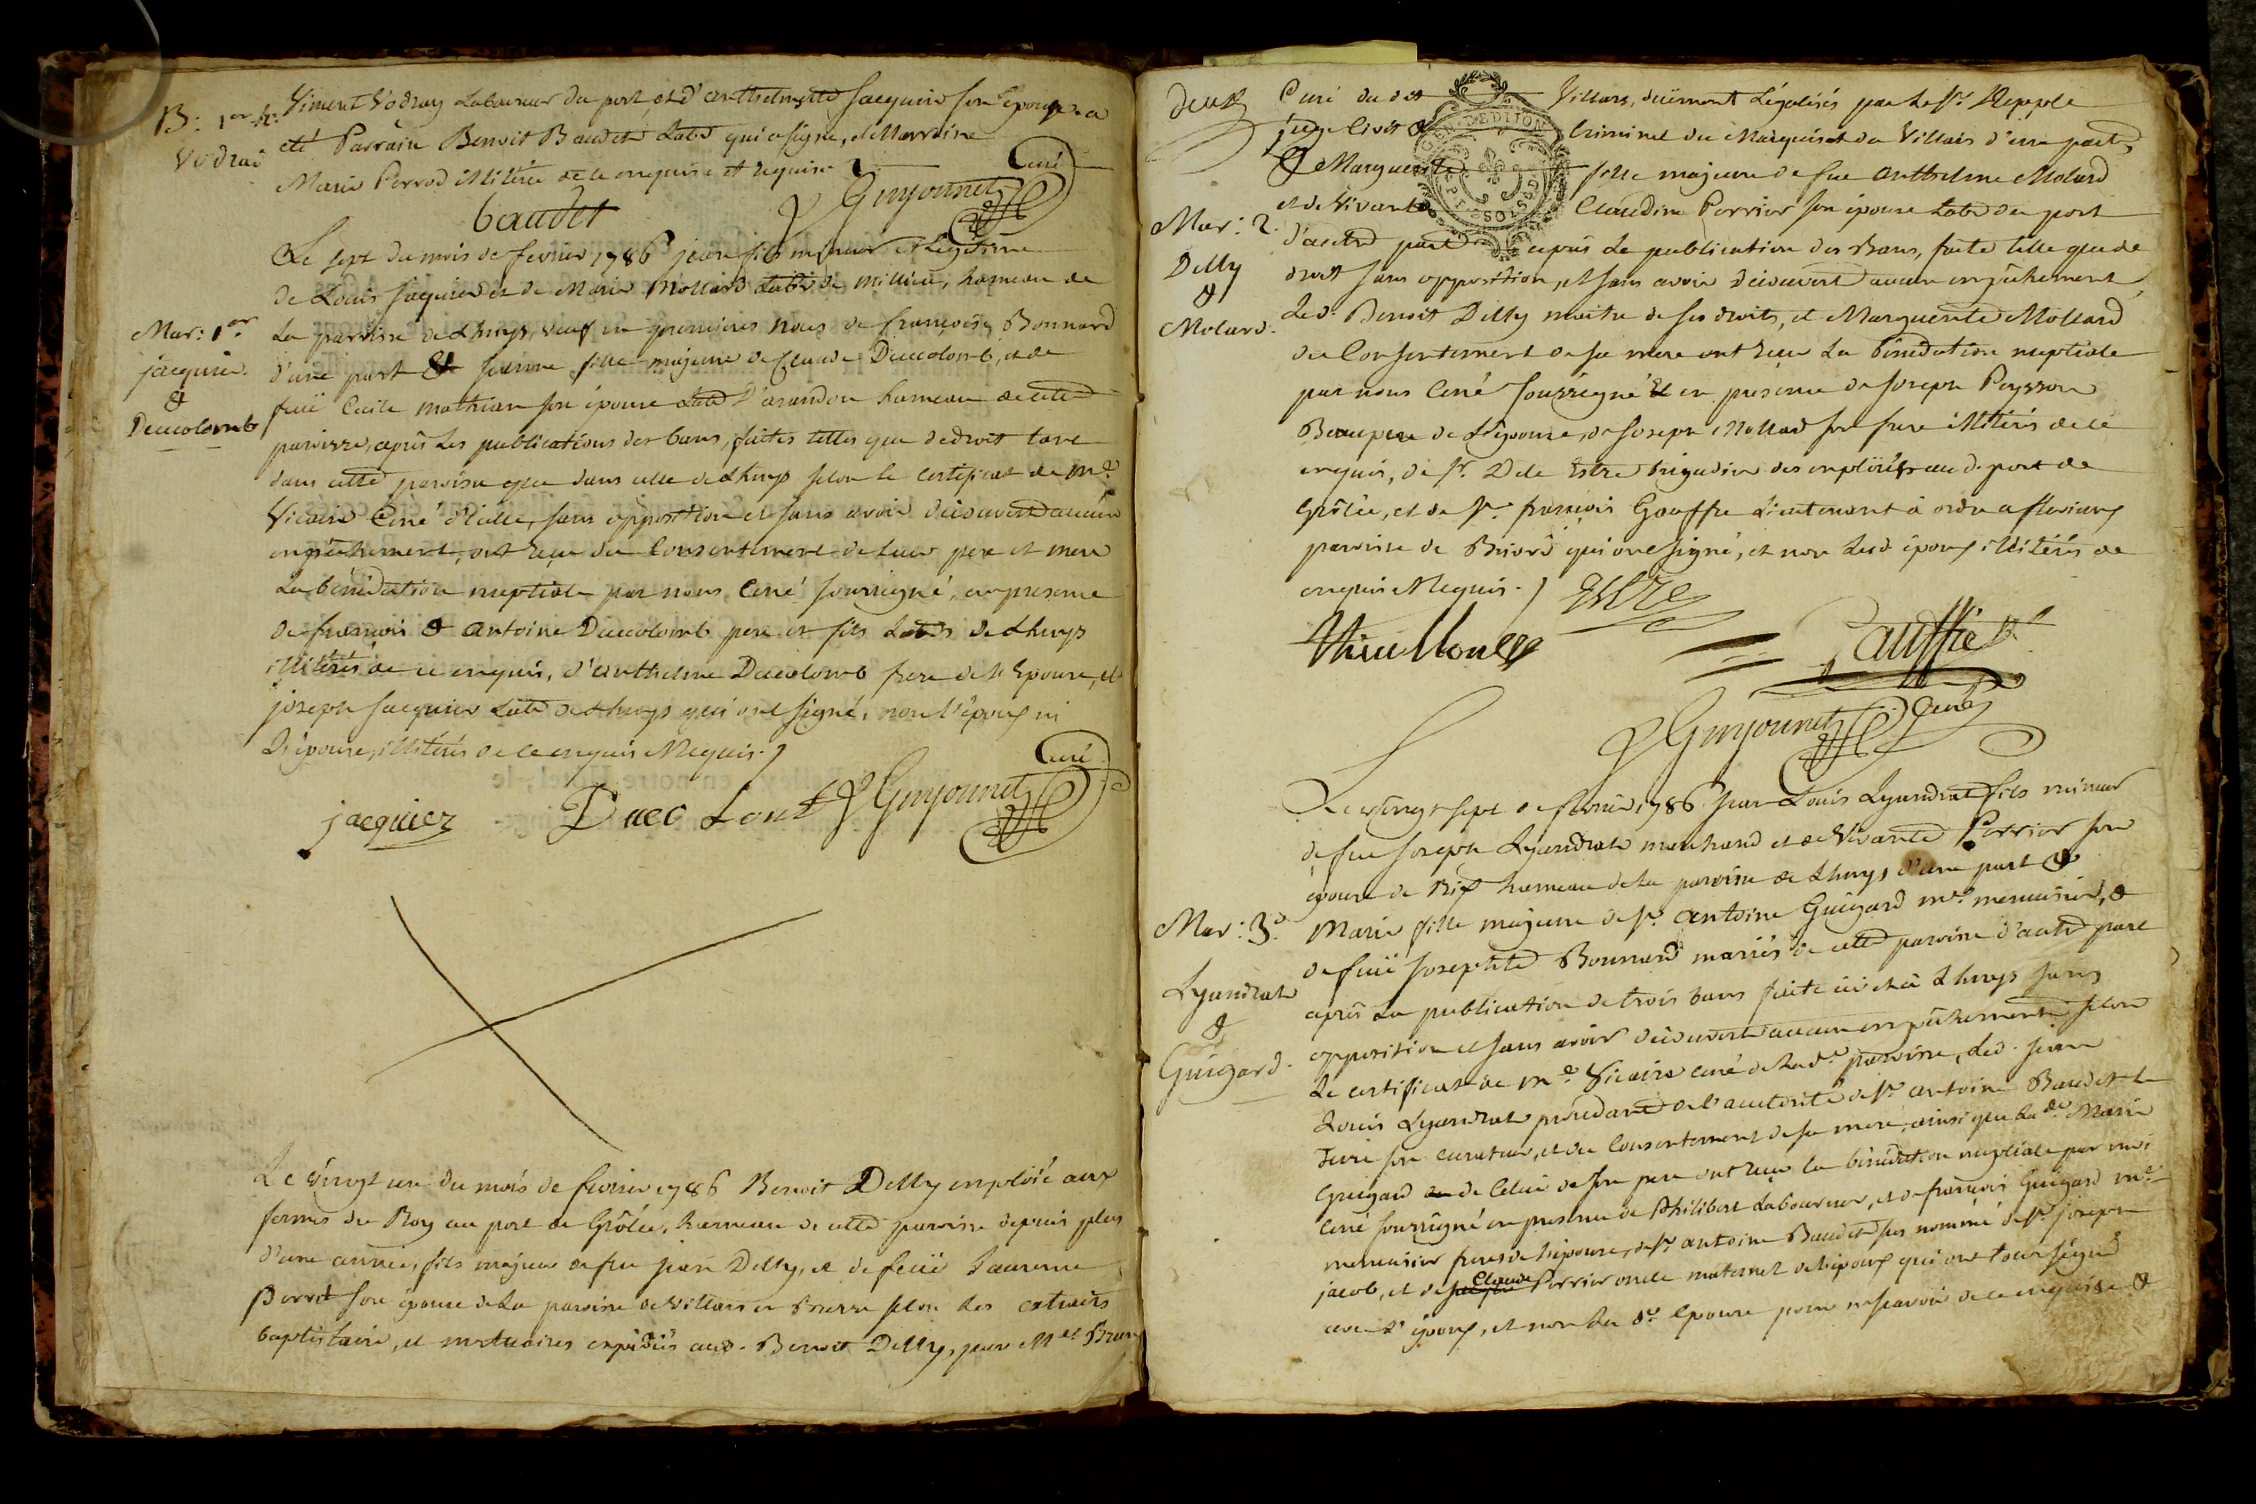 B: 1er
Vodrai
Viment Vodray Laboureur du port et d'anthelmette Jacquier son Epouse a
eté Parrain Benoit Baudet Labr qui a signé, et Marraine
Marie Perrod illitérée de ce enquise et requise
baudet Guyonnet Curé
Le sept du mois de fevrier 1786 jean fils mineur et legitime
de Louis Jacquier et de Marie Mollard Labrs de millieu, hameau de
Mar: 1er
jacquier
&
Ducolomb
la parroisse de Lhuys, veuf en premieres noces de françoise Bonnard
d'une part & fille majeure de Claude Ducolomb, et de
feüe Cecile mathieu son épouse Labrs D'arandon hameau de cette
paroisse, après les publications des bans, faites telles que de droit tant
dans cette paroisse que dans celle de Lhuys selon le certificat de Mre
Vicaire Curé d'icelle, sans opposition et sans avoir découvert aucun
empêchement, ont reçu du Consentement de leur pere et mere
La bénédiction nuptiale par nous Curé soussigné, en presence
de françois & antoine Ducolomb pere et fils Labrs de Lhuys
illitérés de ce enquis, d'anthelme Ducolomb frere de l'Epouse, et
joseph Jacquier Labr de Lhuys qui ont signé, non l'époux ni
L'épouse, illitérés de ce enquis et Requis.
jacquier Duco Lont Guyonnet Curé
Le vingt un du mois de fevrier 1786 Benoit Delly emploïé aux
fermes du Roy au port de Grôlée, hameau de cette paroisse depuis plus
d'une année, fils majeur de feu jean Delly, et de feüe
Perret son épouse de la paroisse de Villars en Bresse selon les extraits
baptistaire, et mortuaires expédiés aud. Benoit Delly, par Mre
deux
Curé du dit Villars, düement Légalisés par le Sr
juge Civil & Criminel du Marquisat du Villars d'une part,
& Marguerite fille majeure de feu anthelme Molard
et de Vivante Claudine Perrier son épouse Labrs du port
Mar: 2.
Delly
&
Molard.
d'autre part après la publication des Bans, faite telle que de
droit sans opposition, et sans avoir découvert aucun empêchement,
Led. Benoit Delly maitre de ses droits, et Marguerite Mollard
du Consentement de sa mere ont reçu La bénédiction nuptiale
par nous Curé soussigné & en presence de Joseph Peysson
Beaupere de L'épouse, de Joseph Mollard son frere illitérés de ce
enquis, de Sr Estre brigadier des emploïés au d. port de
Grôlée, et de Sr françois Gauffre Lieutenant à
paroisse de Briord qui ont signé, et non Lesd époux illitérés de
enquis et Requis.
Estre
Gauffre
Guyonnet Curé
Le vingt sept de fevrier 1786 Jean Louis Lyandrat fils mineur
de feu Joseph Lyandrat marchand et de Vivante Perrier son
épouse de Rix hameau de la paroisse de Lhuys d'une part &
Mar: 3e
Lyandrat
&
Guigard.
Marie fille majeure de Sr antoine Guigard mre menuisier, &
de feüe Josephte Bonnard mariés de cette paroisse d'autre part
après La publication de trois bans faite ici et à Lhuys sans
opposition et sans avoir découvert aucun empêchement selon
Le certificat de Mre Vicaire curé de lade paroisse, led. jean
Louis Lyandrat procédant de l'autorité de Sr antoine Baudet le
son curateur, et du Consentement de sa mere, ainsi que lade Marie
Guigard de Celui de son pere ont reçu la bénédiction nuptiale par moi
Curé soussigné en presence de Philibert Laboureur, et de françois Guigard mre
menuisier freres de L'épouse, de Sr antoine Baudet sus nommé de Sr joseph
jacob, et de Claude Perrier oncle maternel de L'époux qui ont tous signé
avec l'époux, et non La de Epouse pour ne sçavoir de ce enquise &